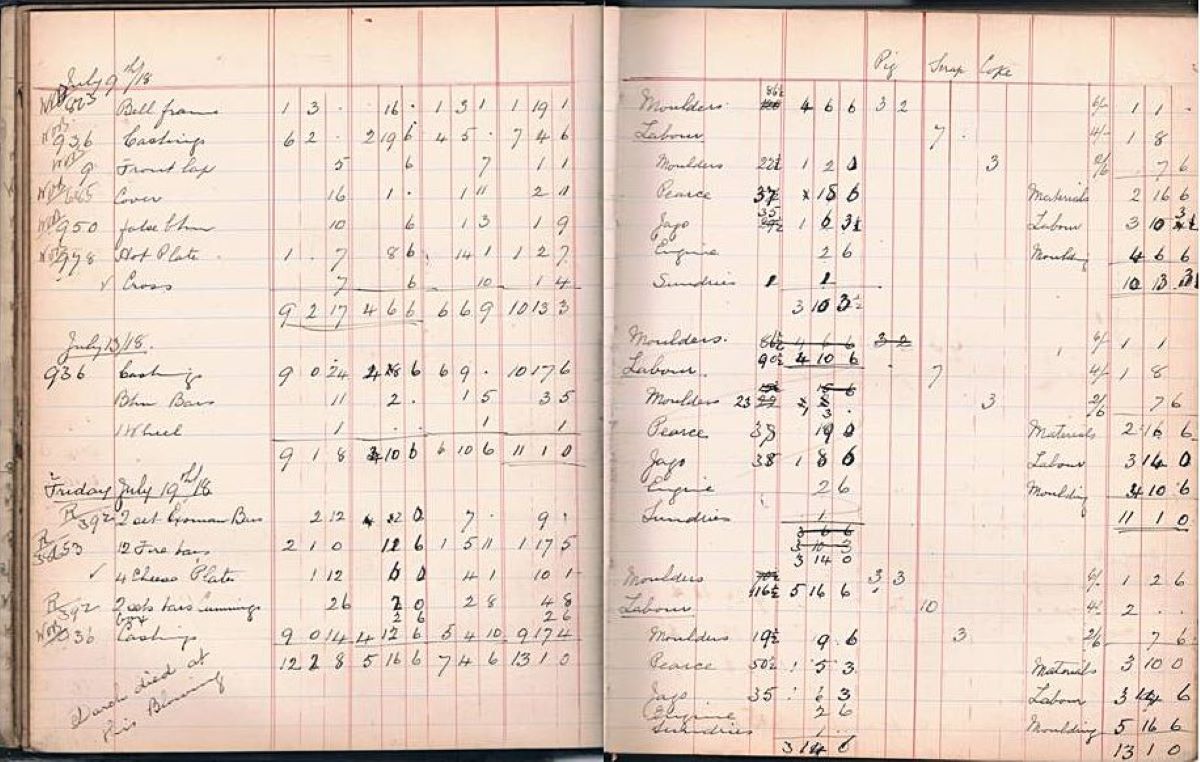 July 9th/18
Bell frame 1 3 . 16 . 1 3 1 1 19 1
936 Castings 6 2 . 2 19 6 4 5 . 7 4 6
9 Front lap 5 6 7 1 1
Cover 16 1 . 1 11 2 11
950 false btm 10 6 1 3 1 9
978 Hot Plate 1 . 7 8 6 14 1 1 2 7
✓ Cross 7 6 10 1 4
9 2 17 4 6 6 6 6 9 10 13 3
July 13/18
936 Castings 9 0 24 8 6 6 9 . 10 17 6
Btm Bars 11 2 . 1 5 3 5
1 Wheel 1 . . 1 1
9 1 8 10 6 6 10 6 11 1 0
Friday July 19th/18
R/392 2 set Bars 2 12 2 0 7 . 9 .
12 Fire bars 2 1 0 12 6 1 5 11 1 17 5
✓ 4 Cheese Plates 1 12 6 0 4 1 10 1
R/392 2 sets bars Cummings 26 2 0 2 8 4 8
2 6 2 6
936 Castings 9 0 14 4 12 6 5 4 10 9 17 4
12 2 8 5 16 6 7 4 6 13 1 0
died at
this Blowing
Pig Scrap Coke
Moulders 86½ 4 6 6 3 2 6/- 1 1 .
Labour 7 . 4/- 1 8
Moulders 22½ 1 2 0 3 2/6 . 7 6
Pearce 37½ 18 6 Materials 2 16 6
Jago 35 1 6 3½ Labour 3 10 3½
Engine 2 6 Moulding 4 6 6
Sundries 1 10 13 3½
3 10 3½
Moulders. 86½ 4 6 6 3 2 6/- 1 1
Labour. 90½ 4 10 6 7 4/- 1 8
Moulders 23 3 . 3 2/6 7 6
Pearce 38 19 0 Materials 2 16 6
Jago 38 1 8 6 Labour 3 14 0
Engine 2 6 Moulding 4 10 6
Sundries 1 11 1 0
3 6 6
3 10 3
3 14 0
Moulders 116½ 5 16 6 3 3 6/- 1 2 6
Labour 10 4/- 2 . .
Moulders 19½ 9 6 3 2/6 7 6
Pearce 50½ 1 5 3 Materials 3 10 0
Jago 35 1 6 3 Labour 3 14 6
Engine 2 6 Moulding 5 16 6
Sundries 1
3 14 6 13 1 0